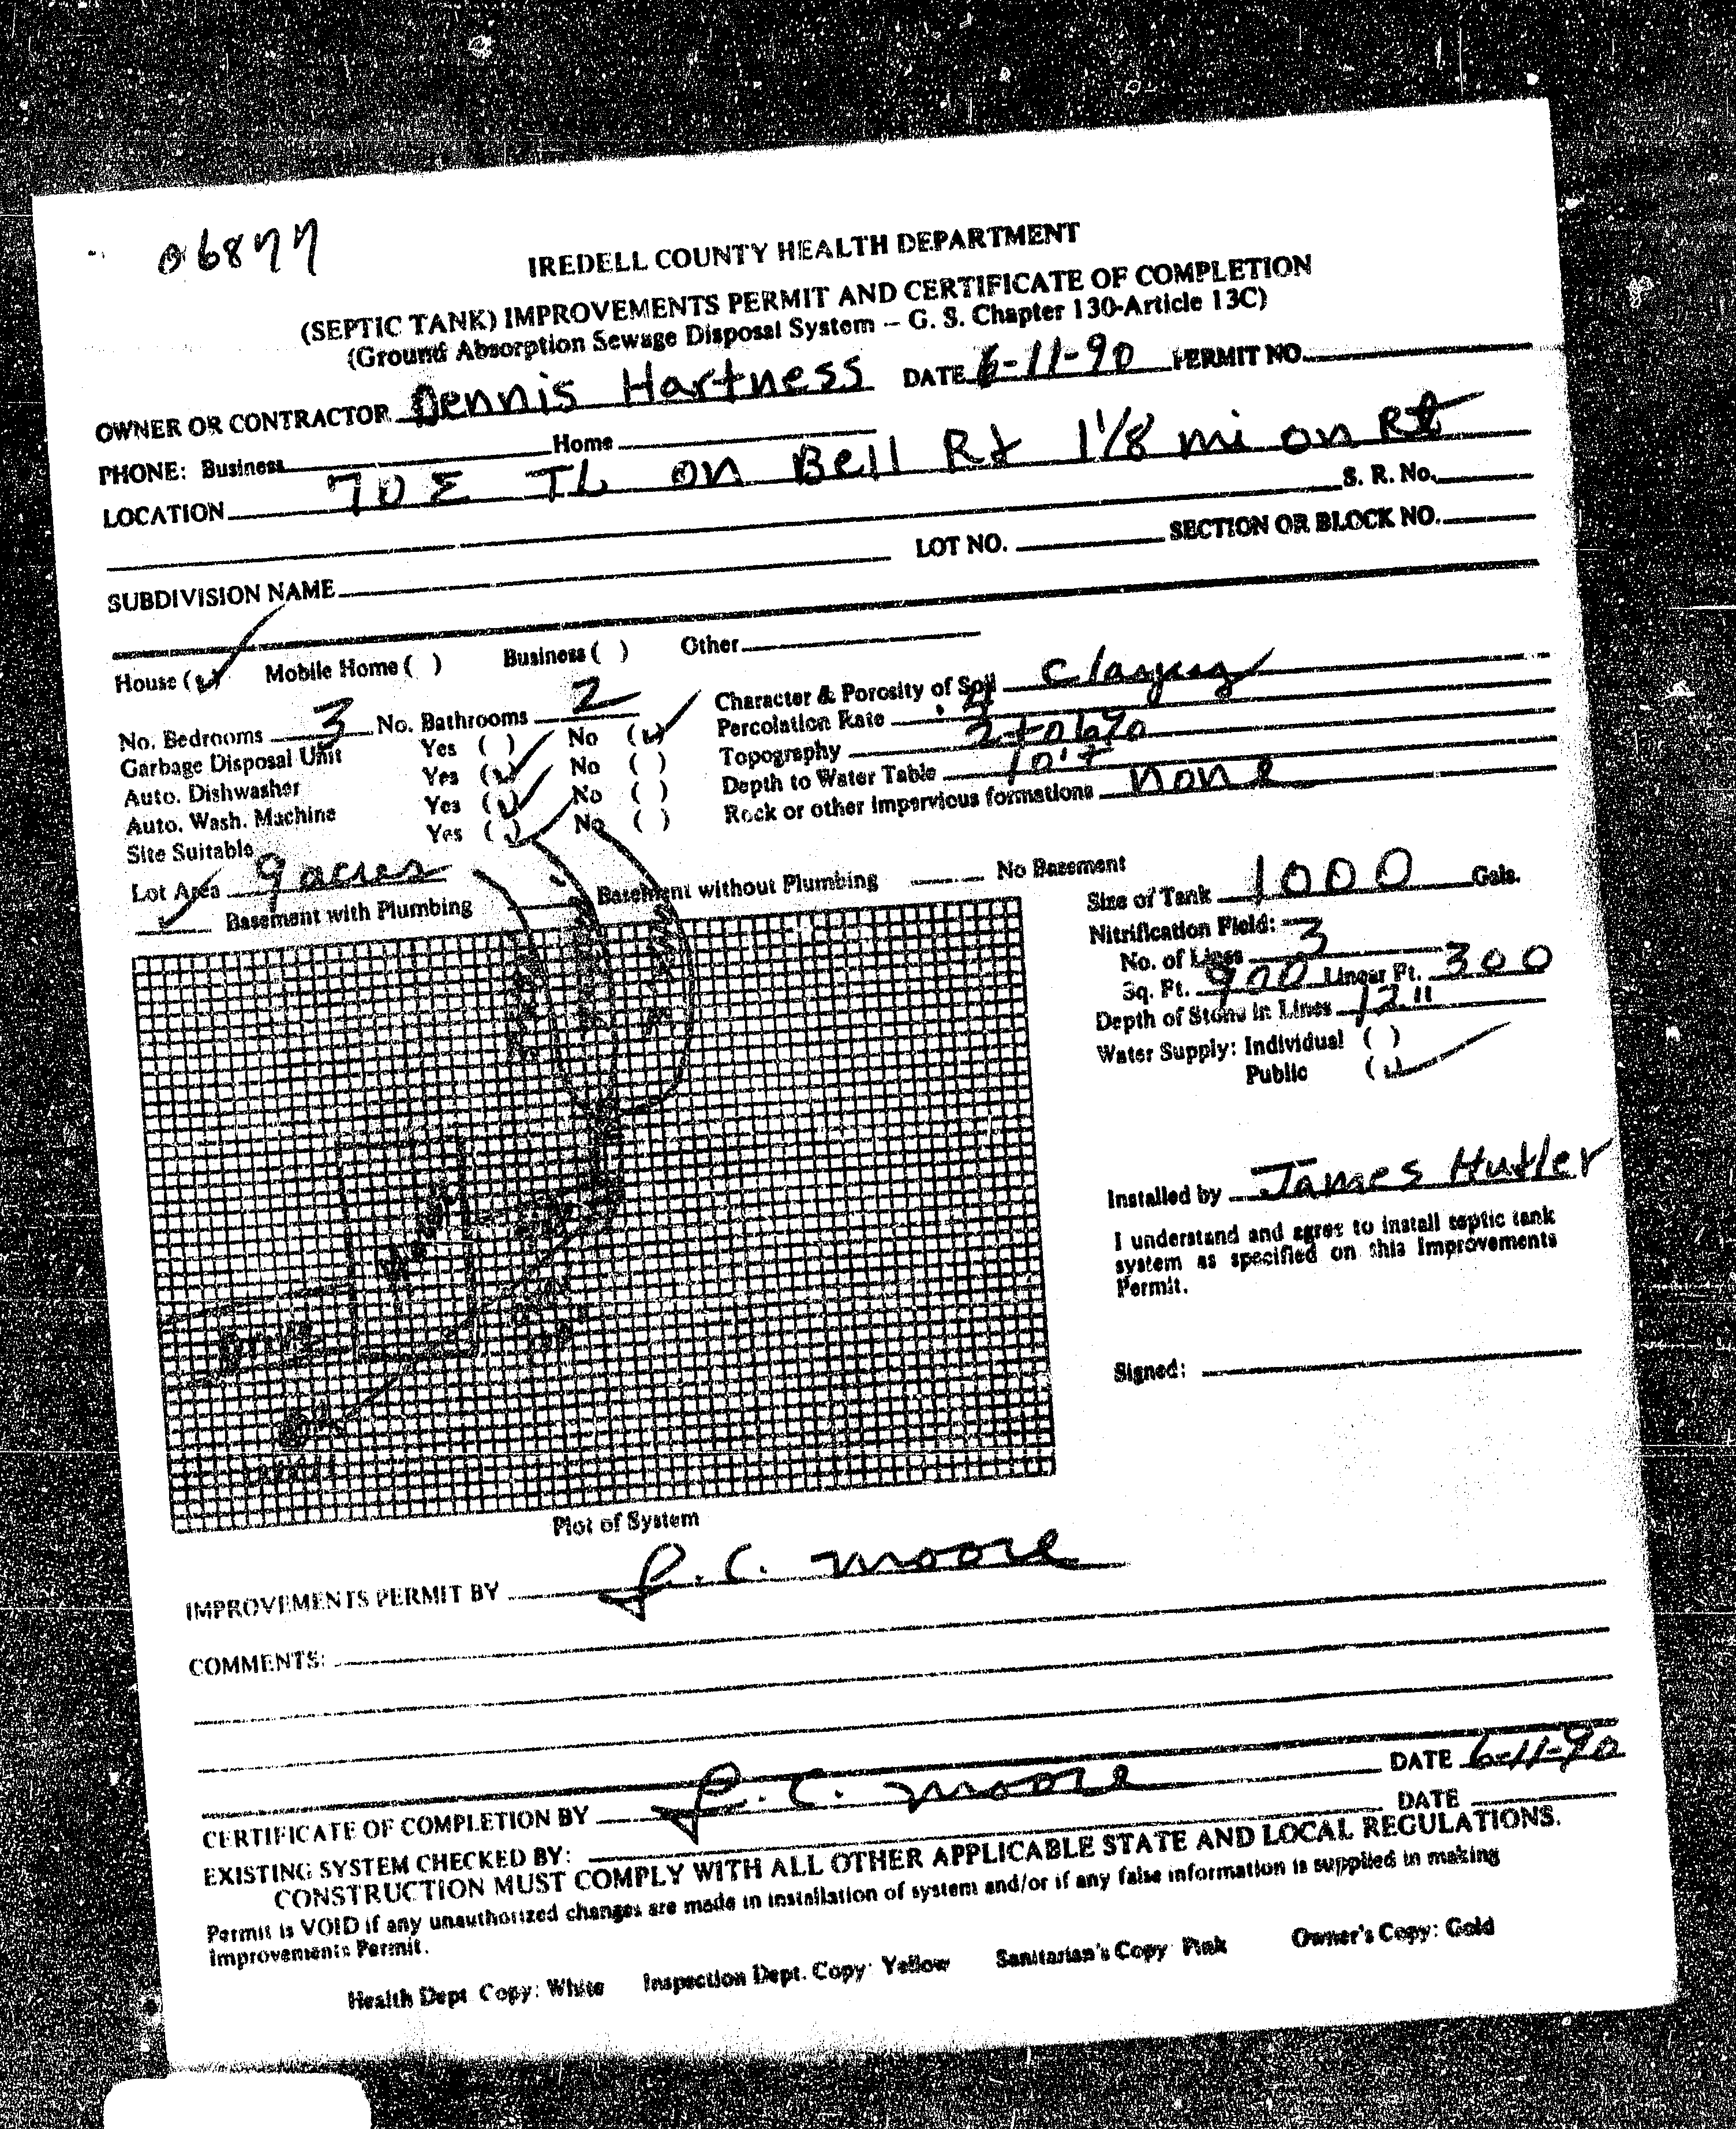 06877
IREDELL COUNTY HEALTH DEPARTMENT
(SEPTIC TANK) IMPROVEMENTS PERMIT AND CERTIFICATE OF COMPLETION
(Ground Absorption Sewage Disposal System – G. S. Chapter 130-Article 13C)
OWNER OR CONTRACTOR Dennis Hartness DATE 6-11-90 PERMIT NO.
PHONE: Business Home
LOCATION 70 E TL on Bell Rd 1 1/8 mi on Rt
S. R. No.
SUBDIVISION NAME LOT NO. SECTION OR BLOCK NO.
House (✓) Mobile Home ( ) Business ( ) Other
No. Bedrooms 3 No. Bathrooms 2
Garbage Disposal Unit Yes ( ) No (✓)
Auto. Dishwasher Yes (✓) No ( )
Auto. Wash. Machine Yes (✓) No ( )
Site Suitable Yes (✓) No ( )
Character & Porosity of Soil clayey
Percolation Rate .4
Topography 2 to 6%
Depth to Water Table 10'+
Rock or other impervious formations none
Lot Area 9 acres
✓ Basement with Plumbing Basement without Plumbing No Basement
Size of Tank 1000 Gals.
Nitrification Field:
No. of Lines 3
Sq. Ft. 900 Linear Ft. 300
Depth of Stone in Lines 12"
Water Supply: Individual ( )
Public (✓)
Installed by James Hutler
I understand and agree to install septic tank
system as specified on this Improvements
Permit.
Signed:
Plot of System
IMPROVEMENTS PERMIT BY J. C. Moore
COMMENTS:
CERTIFICATE OF COMPLETION BY J. C. Moore DATE 6-11-90
EXISTING SYSTEM CHECKED BY: DATE
CONSTRUCTION MUST COMPLY WITH ALL OTHER APPLICABLE STATE AND LOCAL REGULATIONS.
Permit is VOID if any unauthorized changes are made in installation of system and/or if any false information is supplied in making
Improvements Permit.
Health Dept Copy: White Inspection Dept. Copy: Yellow Sanitarian's Copy Pink Owner's Copy: Gold